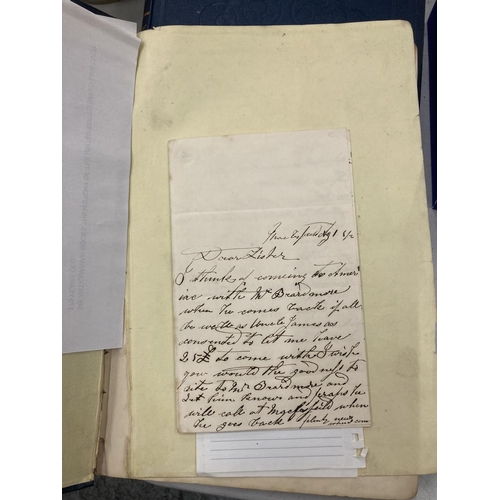 Dear Sister
I think of coming to Amer
iac with Mr Beardmore
when he comes back if all
be well as Uncle James as
consented to let me have
25£ to come with I wish
you would the goodness to
rite to Mr Beardmore and
let him know and praps he
will call at when
he goes back plenty news